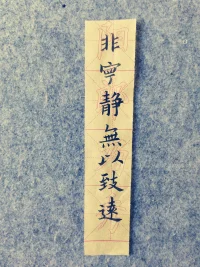 非寧静無以致遠